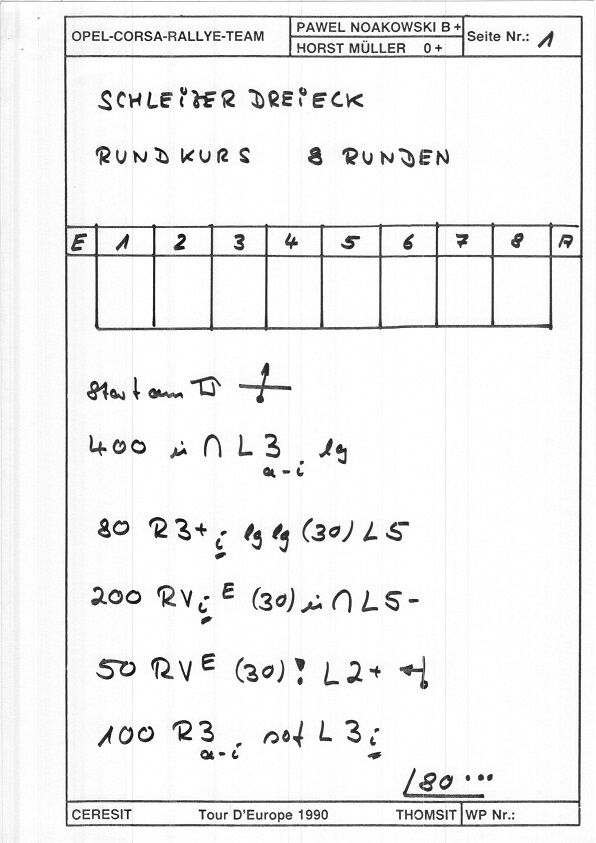 OPEL-CORSA-RALLYE-TEAM
PAWEL NOAKOWSKI B +
HORST MÜLLER 0 +
Seite Nr.: 1
SCHLEIZER DREIECK
RUNDKURS 8 RUNDEN
E 1 2 3 4 5 6 7 8 A
Start am
400 in ∩ L 3 a-i lg
80 R3+ i lg lg (30) L5
200 RV i E (30) in ∩ L5-
50 RV E (30) ! L2+
100 R3 a-i sof L 3 i
/80...
CERESIT Tour D'Europe 1990 THOMSIT WP Nr.: